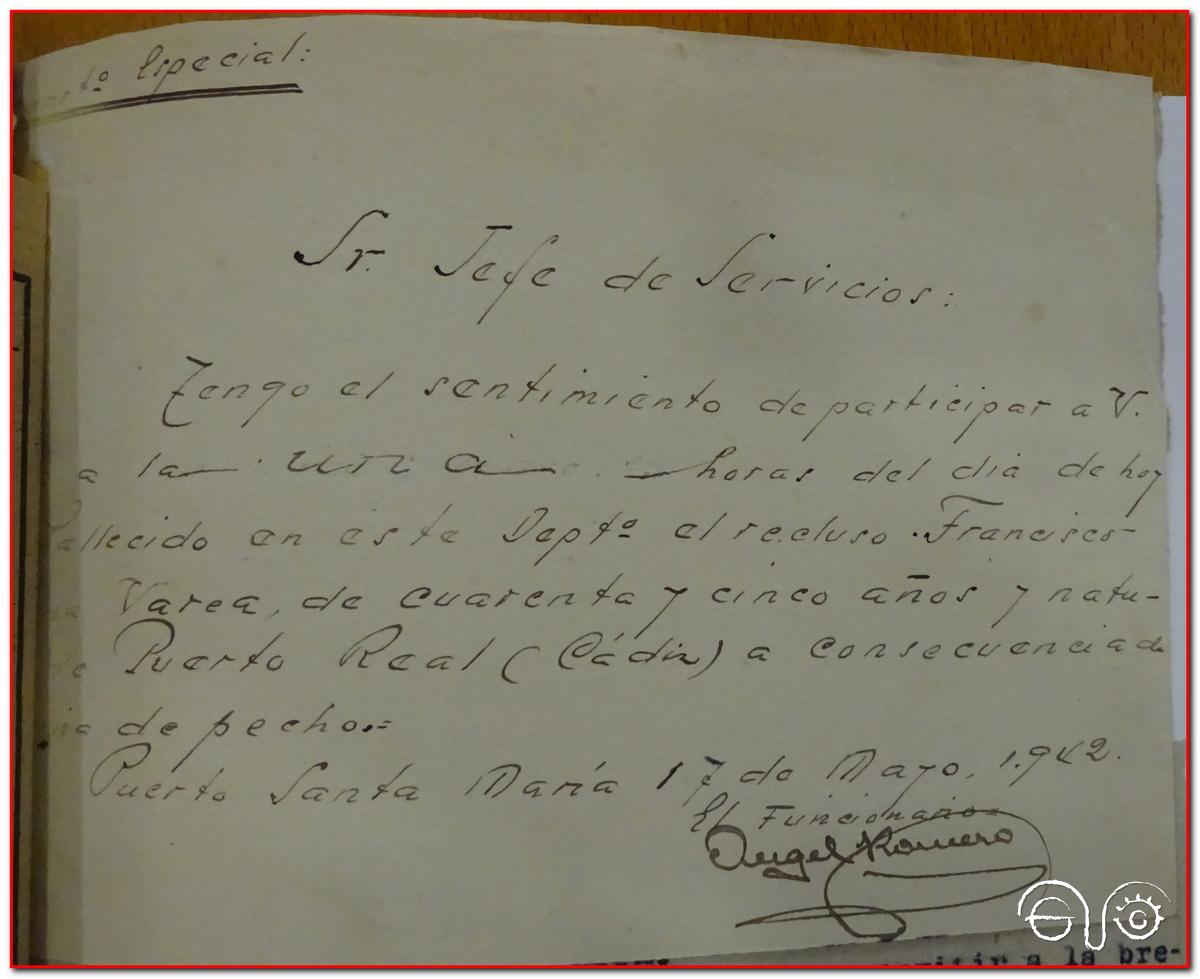 rtº Especial:
Sr. Jefe de Servicios:
Tengo el sentimiento de participar a V.
a la una horas del dia de hoy
allecido en este Deptº el recluso Francisco
Varea, de cuarenta y cinco años y natu-
de Puerto Real (Cádiz) a consecuencia de
de pecho.=
Puerto Santa María 17 de Mayo, 1.942.
El Funcionario
Angel Romero
a la bre-